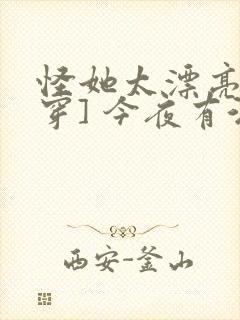 怪她太漂亮
穿] 今夜有
西安-釜山